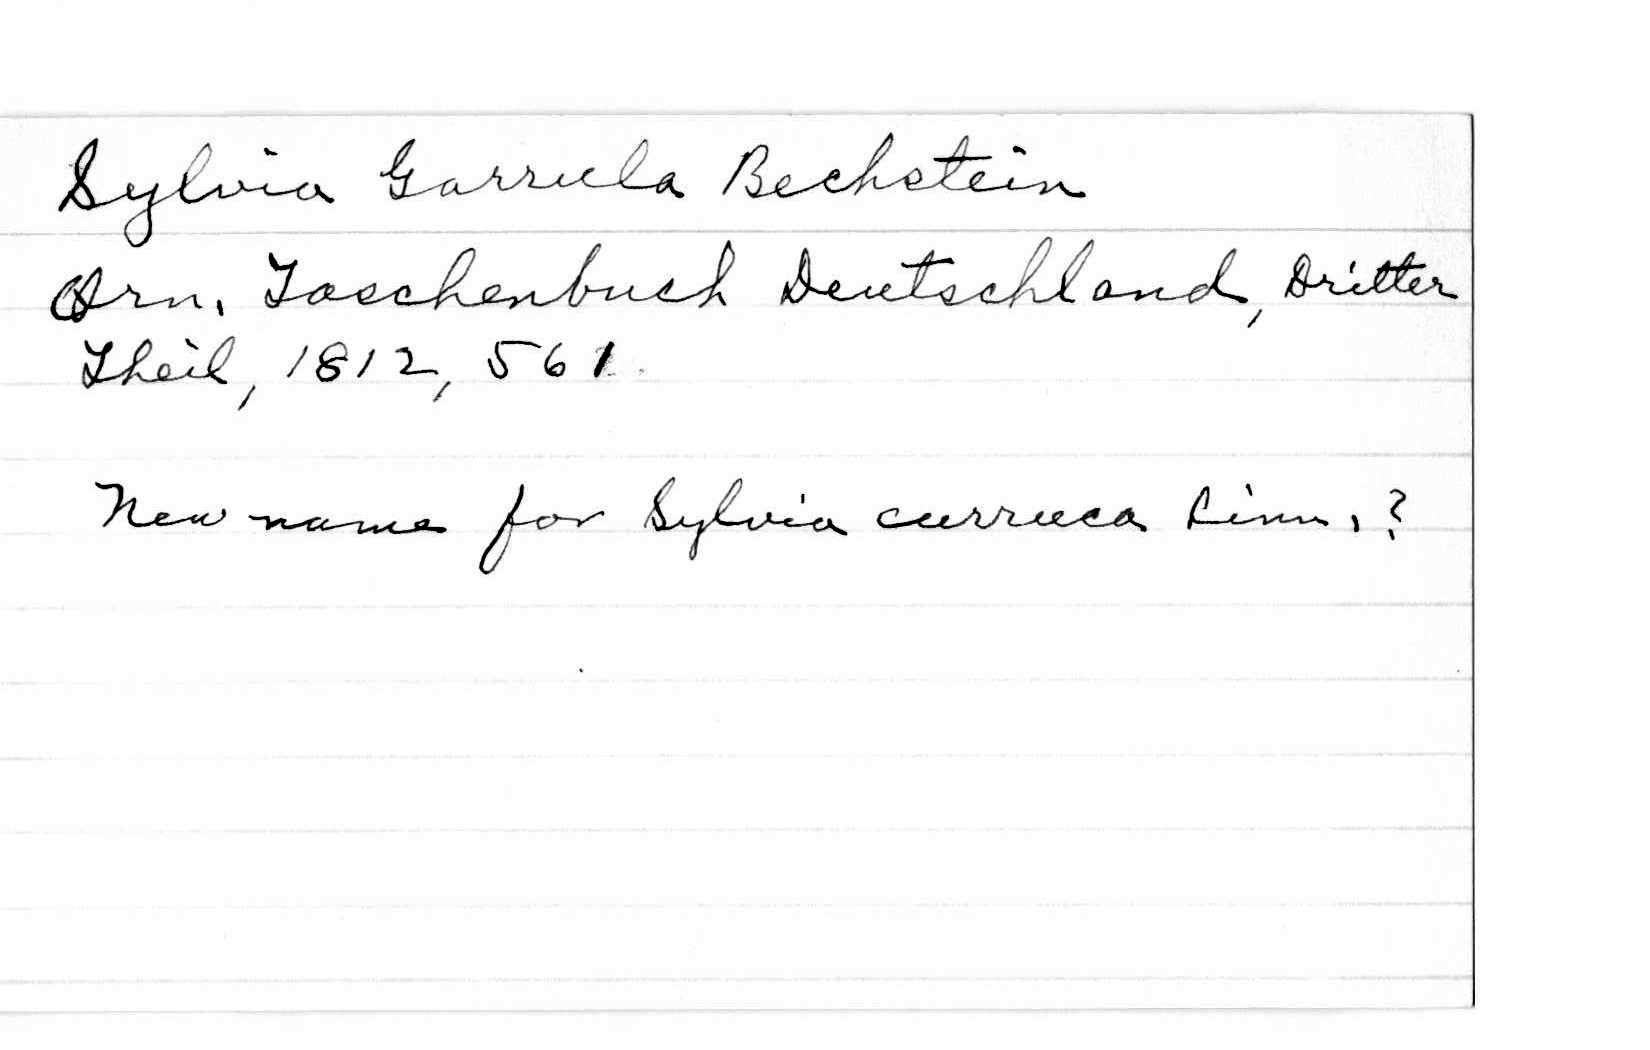 Sylvia Garrula Bechstein
Orn. Taschenbuch Deutschland, Dritter
Theil, 1812, 561.
New name for Sylvia curruca Linn.?